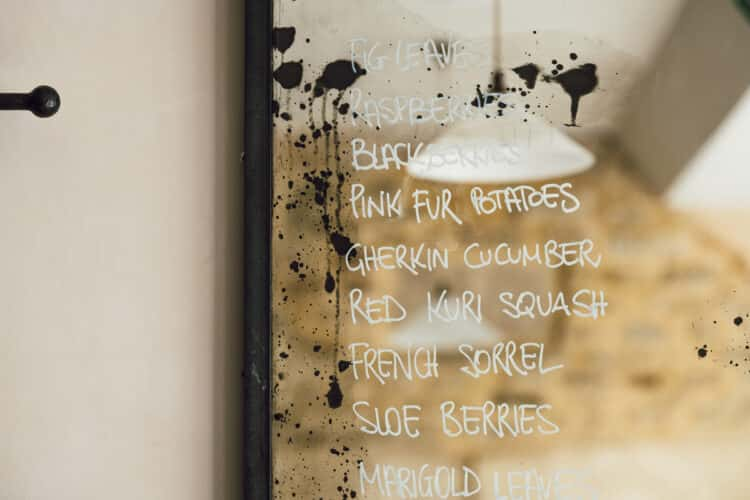 FIG LEAVES
RASPBERRIES
BLACKBERRIES
PINK FUR POTATOES
GHERKIN CUCUMBER
RED KURI SQUASH
FRENCH SORREL
SLOE BERRIES
MARIGOLD LEAVES